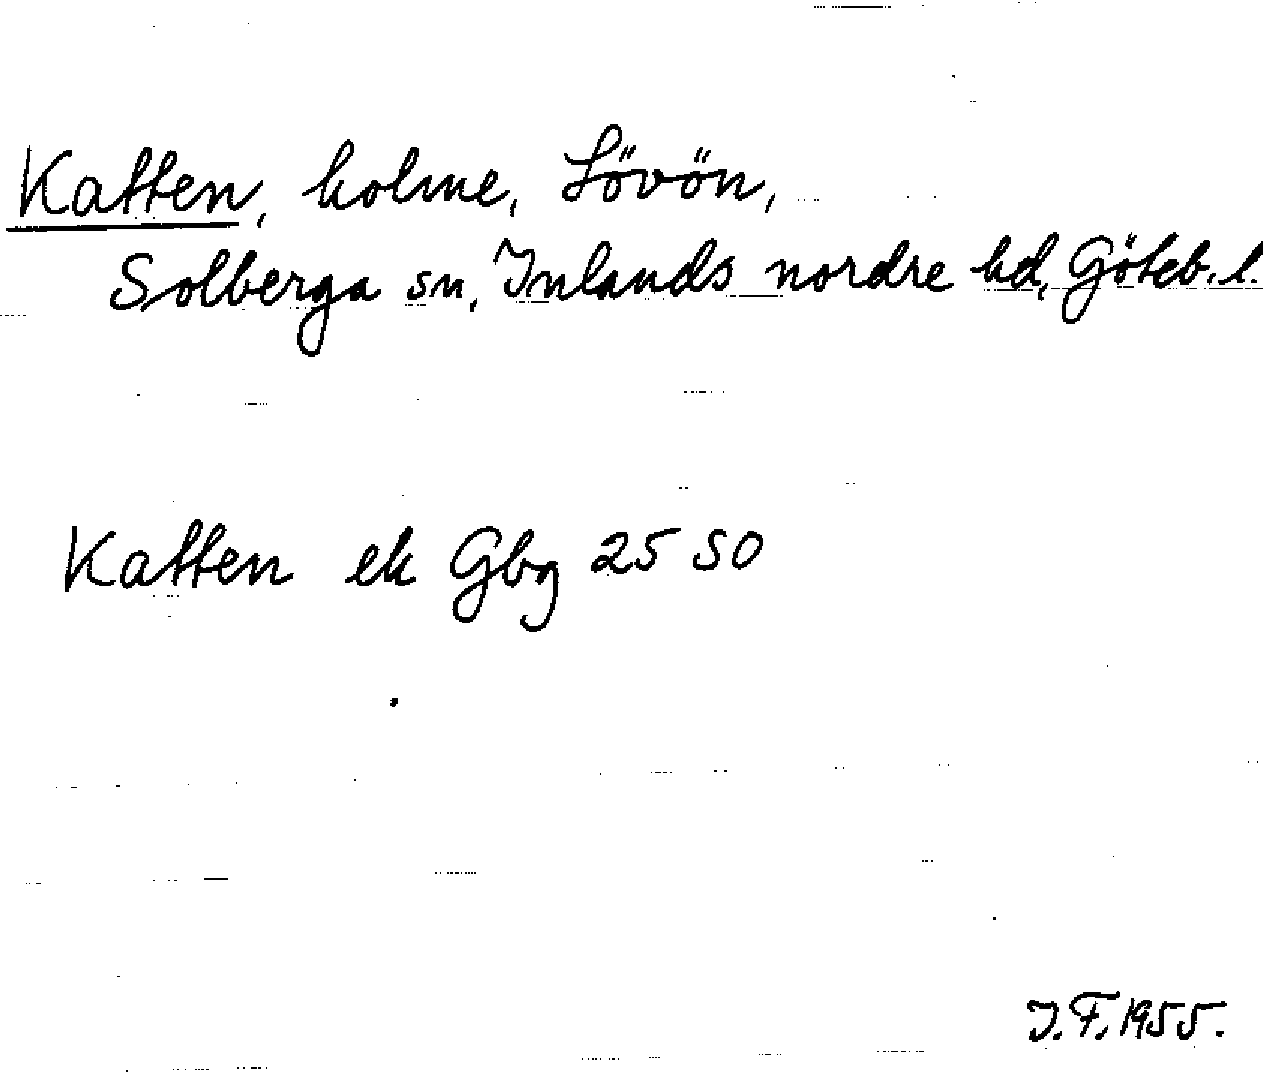 Katten, holme, Lövön,
Solberga sn, Inlands nordre hd, Göteb. l.
Katten ek Gbg 25 SO
J.F. 1955.